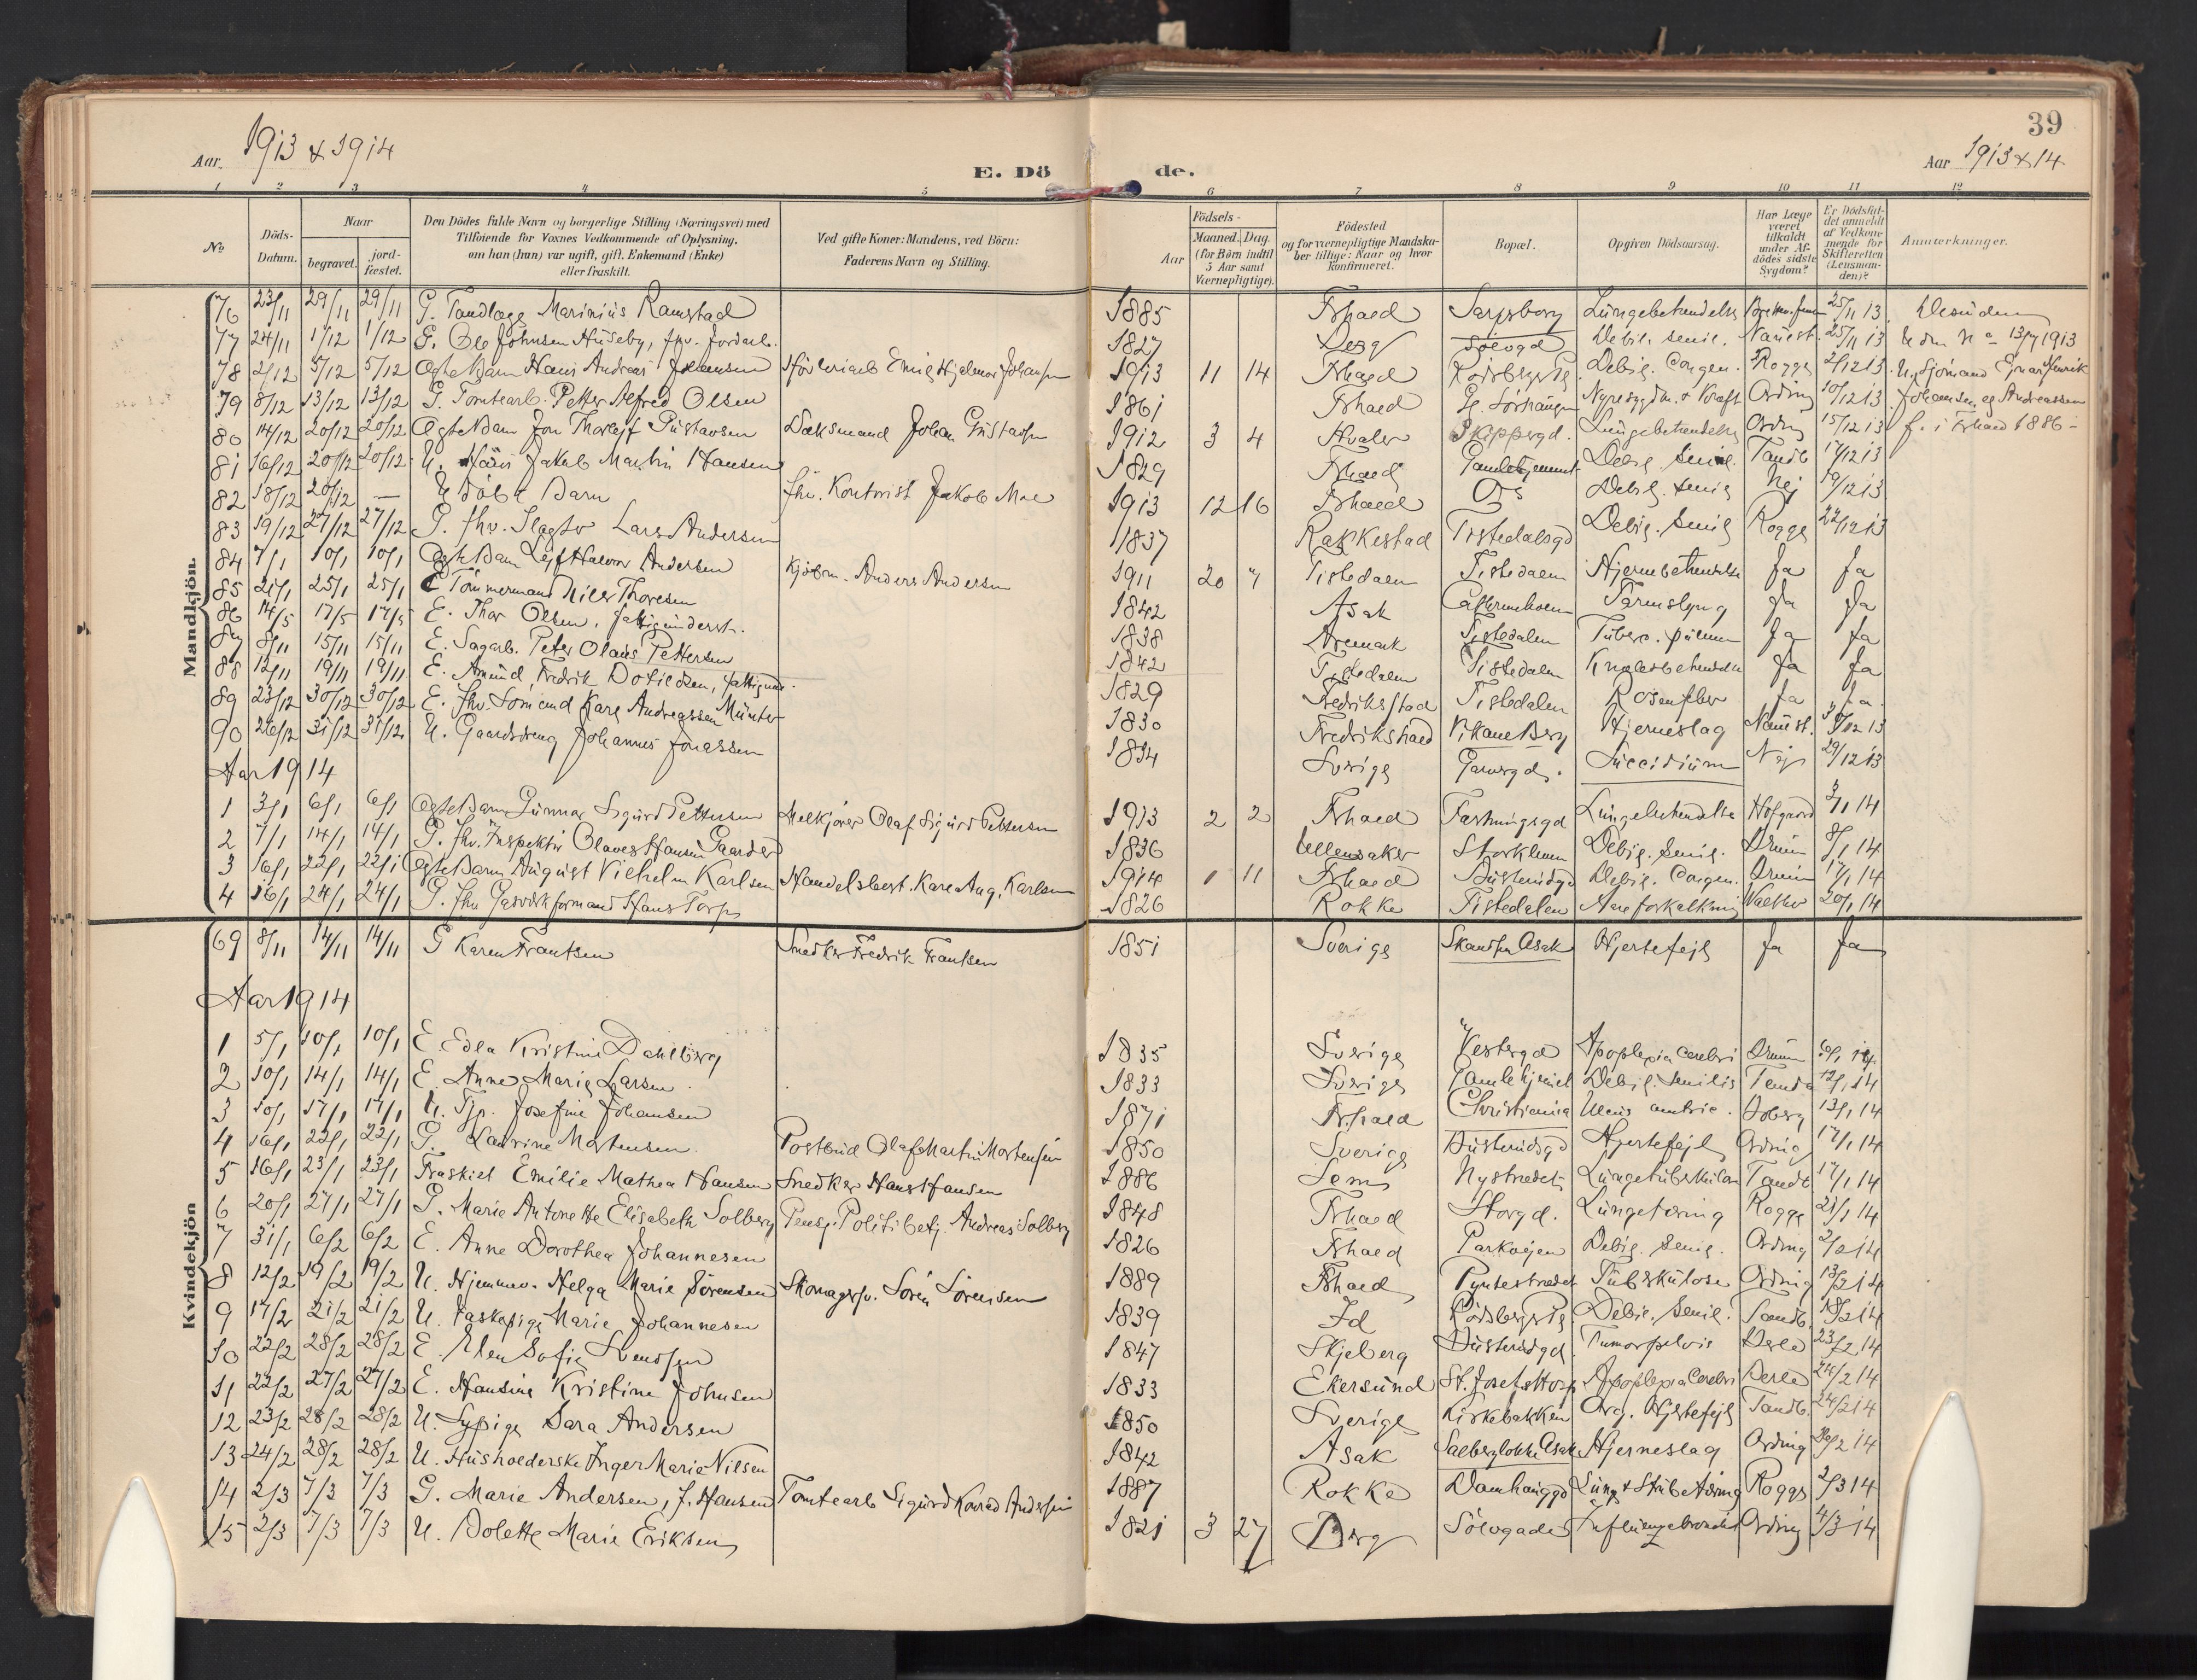 39
Aar 1913 & 1914
E. Döde.
Aar 1913 & 14
1 2 3 4 5 6 7 8 9 10 11 12
No
Döds-Datum.
Naar
begravet.
jord-fæstet.
Den Dödes fulde Navn og borgerlige Stilling (Næringsvei) med Tilföiende for Voxnes Vedkommende af Oplysning, om han (hun) var ugift, gift, Enkemand (Enke) eller fraskilt.
Ved gifte Koner: Mandens, ved Börn: Faderens Navn og Stilling.
Födsels-
Aar
Maaned. Dag.
(for Börn indtil 5 Aar samt Værnepligtige).
Födested og for værnepligtige Mandskaber tillige: Naar og hvor konfirmeret.
Bopæl.
Opgiven Dödsaarsag.
Har Læge været tilkaldt under Afdödes sidste Sygdom?
Er Dödsfaldet anmeldt af Vedkommende for Skifteretten (Lensmanden)?
Anmærkninger.
Mandkjön.
76 23/11 29/11 29/11 G. Tandlæge Marinius Ramstad 1885 Fhald Sarpsborg Lungebetændelse 25/11 13
77 24/11 1/12 1/12 E. Ole Johnsen Huseby, fhv. Jordarb. 1827 Berg Sølvgd Debil. senil. 25/11 13
78 2/12 5/12 5/12 Ægte Barn Hans Andreas Johansen Emil Hjalmar Johansen 1913 11 14 Fhald Debil. Congen. Rogge 2/12 13 Sjömand Ejnar Henrik
79 8/12 13/12 13/12 G. Tomtearb. Petter Alfred Olsen 1861 Fhald Nyresygdm. & Kræft Ording 10/12 13 Johansen og Andreassen
80 14/12 20/12 20/12 Ægte Barn Jon Thoralf Gustavsen Johan Gustavsen 1912 3 4 Hvaler Skippergd. Lungebetændelse Ording 15/12 13 f. i Fhald 1886 -
81 16/12 20/12 20/12 U. Jakob Martin Hansen 1829 Fhald Gamlehjemmet Debil. senil. Tandb 17/12 13
82 18/12 20/12 — Udöbt Barn fhv. Kontorist Jakob Moe 1913 12 16 Fhald Os Debil. senil Nej 19/12 13
83 19/12 27/12 27/12 G. fhv. Slagter Lars Andersen 1837 Rakkestad Tistedalsgd Debil. senil Rogge 22/12 13
84 7/1 10/1 10/1 Ægte Barn Leif Halvor Andersen Kjøbm. Anders Andersen 1911 20 7 Tistedalen Tistedalen Hjernebetændelse Ja Ja
85 21/1 25/1 25/1 E Tömmermand Nils Thoresen 1842 Asak Cathrineholm Tarmslyng Ja Ja
86 14/5 17/5 17/5 E. Thor Olsen, fattigunderst. 1838 Aremark Tistedalen Tuberc. pulmon Ja Ja
87 8/11 15/11 15/11 E. Sagarb. Peter Olaus Pettersen 1842 Tistedalen Tistedalen Ja Ja
88 12/11 19/11 19/11 E. Amund Fredrik 1829 Fredriksstad Tistedalen Rosenfeber Ja Ja
89 23/12 30/12 30/12 E. fhv. Sömand Karl Andreassen Münter 1830 Fredrikshald Vikane Berg Hjerneslag 30/12 13
90 26/12 31/12 31/12 U. Gaardsdreng Johannes Jonassen 1834 Sverige Suicidium Nej 29/12 13
Aar 1914
1 3/1 6/1 6/1 Ægte Barn Gunnar Sigurd Pettersen Melkjører Olaf Sigurd Pettersen 1913 2 2 Fhald Lungebetændelse Hofgaard 3/1 14
2 7/1 14/1 14/1 G. fhv. Inspektör Olaves Hansen Gaarder 1836 Ullensaker Debil. senil. Drum 8/1 14
3 16/1 22/1 22/1 Ægte Barn August Vilhelm Karlsen Handelsbest. Karl Aug. Karlsen 1914 1 11 Fhald Busterudgd Debil. Congen. Drum 17/1 14
4 16/1 24/1 24/1 G. fhv. Gasverkformand Hans Torp 1826 Rokke Tistedalen Aareforkalkning 20/1 14
Kvindekjön
69 8/11 14/11 14/11 G Karen Frantsen Snedker Fredrik Frantsen 1851 Sverige Asak Hjertefejl Ja Ja
Aar 1914
1 5/1 10/1 10/1 E. Edla Kristine Dahlberg 1835 Sverige Vestergd Apoplexia cerebri Drum 6/1 14
2 10/1 14/1 14/1 E. Anne Marie Larsen 1833 Sverige Gamlehjemmet Debil. senilis 12/1 14
3 10/1 17/1 17/1 U. Tjp. Josefine Johansen 1871 Fr.hald Christiania 13/1 14
4 16/1 22/1 22/1 G. Laurine Mortensen Postbud Olaf Martin Mortensen 1850 Sverige Busterudgd Hjertefejl Ording 17/1 14
5 16/1 23/1 23/1 Fraskilt Emilie Mathea Hansen Snedker Hans Hansen 1886 Sem Nystrædet Lungetuberkulose Tandb. 17/1 14
6 20/1 27/1 27/1 G. Marie Antonette Elisabeth Solberg Pens. Politibetj. Andreas Solberg 1848 Fhald Storgd. Lungetæring Rogge 21/1 14
7 31/1 6/2 6/2 E. Anne Dorothea Johannesen 1826 Fhald Parkvejen Debil. senil. Ording 2/2 14
8 12/2 19/2 19/2 U. Hjemmev. Helga Marie Sörensen Skomager Sören Sörensen 1889 Fhald Tuberkulose Ording 13/2 14
9 17/2 21/2 21/2 U. Vaskepige Marie Johannesen 1839 Id Debil. senil. Tandb. 18/2 14
10 22/2 28/2 28/2 E. Elen Sofie Svensen 1847 Skjeberg Busterudgd. Tumor pelvis 23/2 14
11 22/2 27/2 27/2 E. Hansine Kristine Johnsen 1833 Ekersund St. Josefs Hosp Apoplexia cerebri 24/2 14
12 23/2 28/2 28/2 U. Sypige Sara Andersen 1850 Sverige Kirkebakken Org. Hjertefejl Tandb. 24/2 14
13 24/2 28/2 28/2 U. Husholderske Inger Marie Nilsen 1842 Asak Asak Hjerneslag Ording 26/2 14
14 2/3 7/3 7/3 G. Marie Andersen, f. Hansen Tomtearb Sigurd Konrad Andersen 1887 Rokke Damhauggd Lunge & Strubetæring Rogge 2/3 14
15 2/3 7/3 7/3 U. Bolette Marie Eriksen 1821 3 27 Berg Sölvgaden Ording 4/3 14